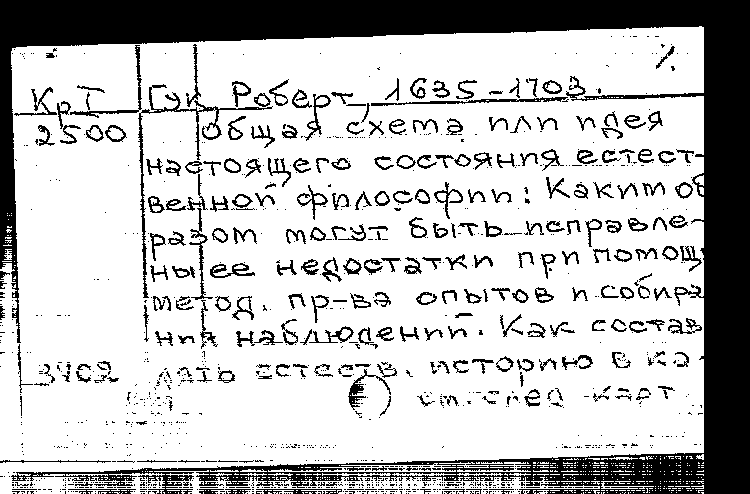 1.
КрТ Гук, Роберт, 1635-1703.
2500 Общая схема или идея
настоящего состояния естест-
венной философии: Каким об
разом могут быть исправле-
ны ее недостатки при помощ
метод. пр-ва опытов и собира
ния наблюдений. Как состав
3402 лять естеств. историю в ка-
см. след карт